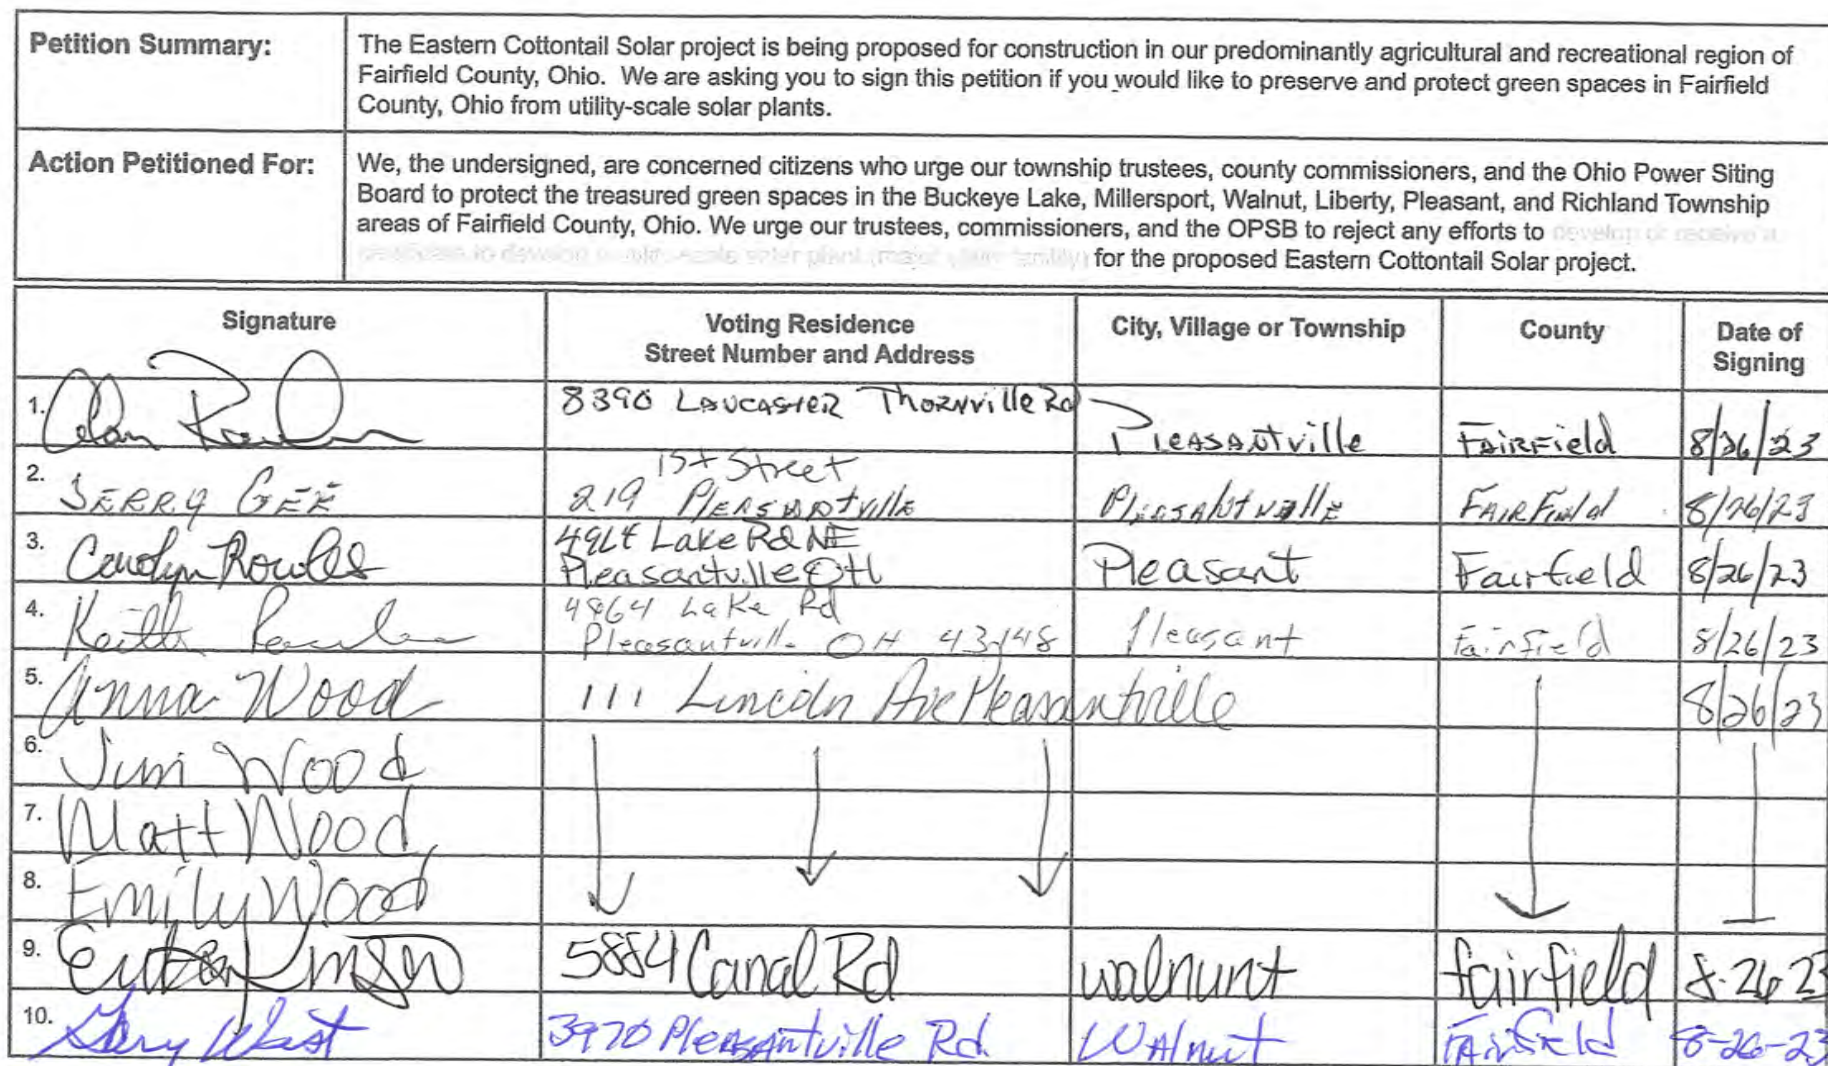 Petition Summary:
The Eastern Cottontail Solar project is being proposed for construction in our predominantly agricultural and recreational region of
Fairfield County, Ohio. We are asking you to sign this petition if you would like to preserve and protect green spaces in Fairfield
County, Ohio from utility-scale solar plants.
Action Petitioned For:
We, the undersigned, are concerned citizens who urge our township trustees, county commissioners, and the Ohio Power Siting
Board to protect the treasured green spaces in the Buckeye Lake, Millersport, Walnut, Liberty, Pleasant, and Richland Township
areas of Fairfield County, Ohio. We urge our trustees, commissioners, and the OPSB to reject any efforts to develop or receive a
to develop solar plant for the proposed Eastern Cottontail Solar project.
Signature
Voting Residence
Street Number and Address
City, Village or Township
County
Date of
Signing
1. Alan 8390 Lancaster Thornville Rd Pleasantville Fairfield 8/26/23
1st Street
2. Jerry Gee 219 Pleasantville Pleasantville Fairfield 8/26/23
3. Carolyn Rowles Lake Rd NE
Pleasantville OH Pleasant Fairfield 8/26/23
4. Keith 4864 Lake Rd
Pleasantville OH 43148 Pleasant Fairfield 8/26/23
5. Anna Wood 111 Lincoln Ave Pleasantville 8/26/23
6. Jim Wood
7. Matt Wood
8. Emily Wood
9. 5884 Canal Rd walnunt fairfield 8-26-23
10. Gary West 3970 Pleasantville Rd. Walnut Fairfield 8-26-23